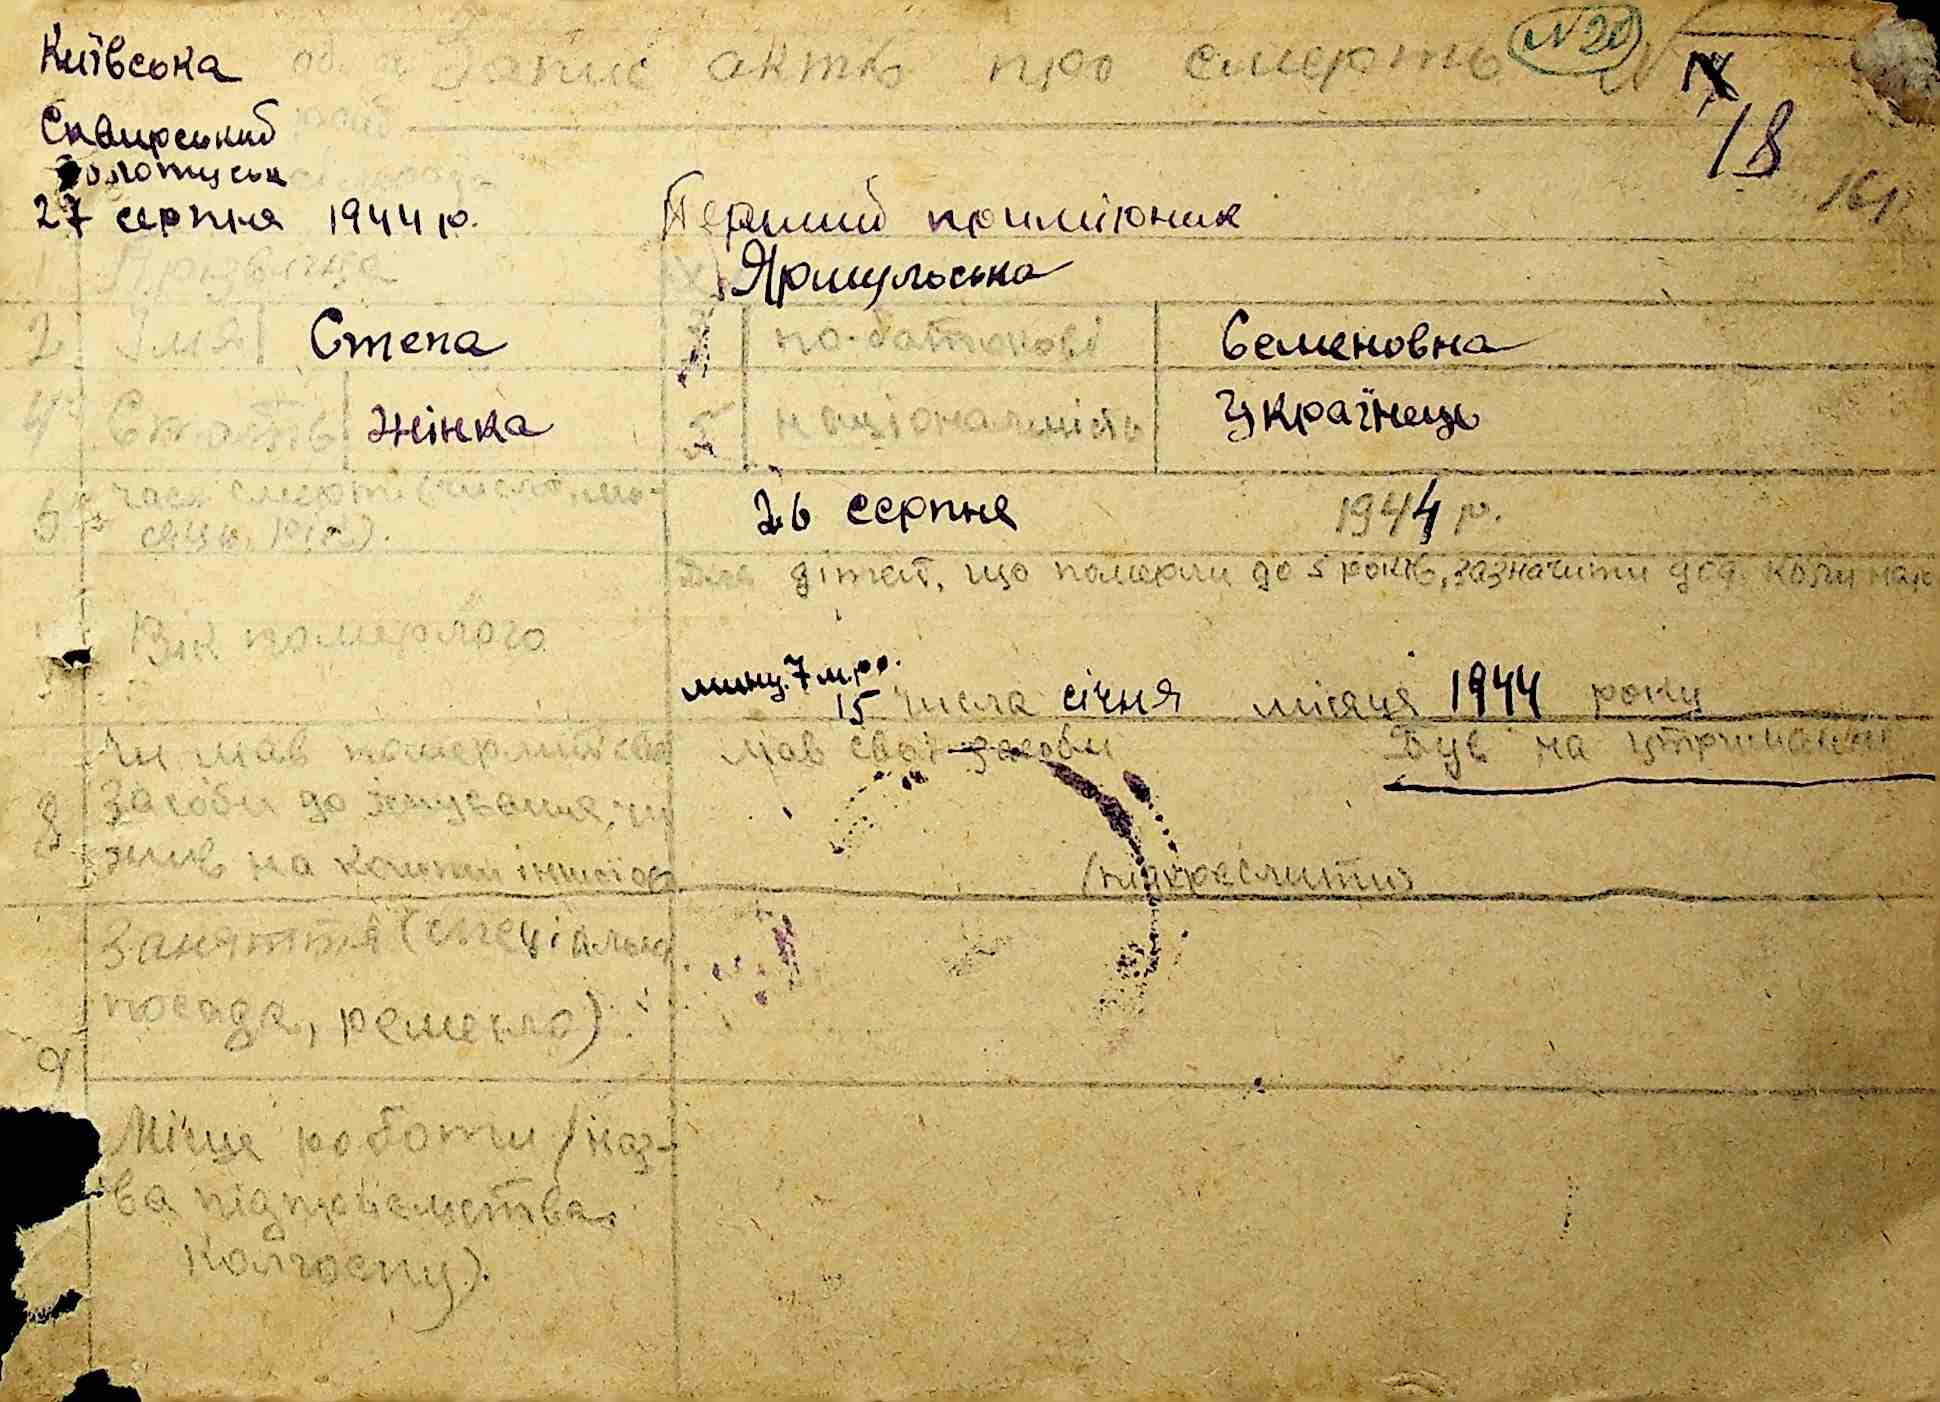 Київська об. Запис актів про смерть N 20 N IX
Сквирський рай 18
27 серпня 1944 р. Перший примірник
1 Прізвище Ярмульська
2 Імя Степа 3 по-батькові Семеновна
4 Стать жінка 5 національність Українець
6 час смерти (число, мі- 26 серпня 1944 р.
сяць, рік).
Для дітей, що померли до 5 років, зазначити дод. коли нар
Вік померлого
7 м.
15 числа січня місяця 1944 року
8 Чи мав померлий сво мав свої засоби Був на утриманні
засоби до існування, чи
жив на кошти інших ос (підкреслити)
9 Заняття (спеціальн
посада, ремесло)
Місце роботи (наз-
ва підприємства
колгоспу).